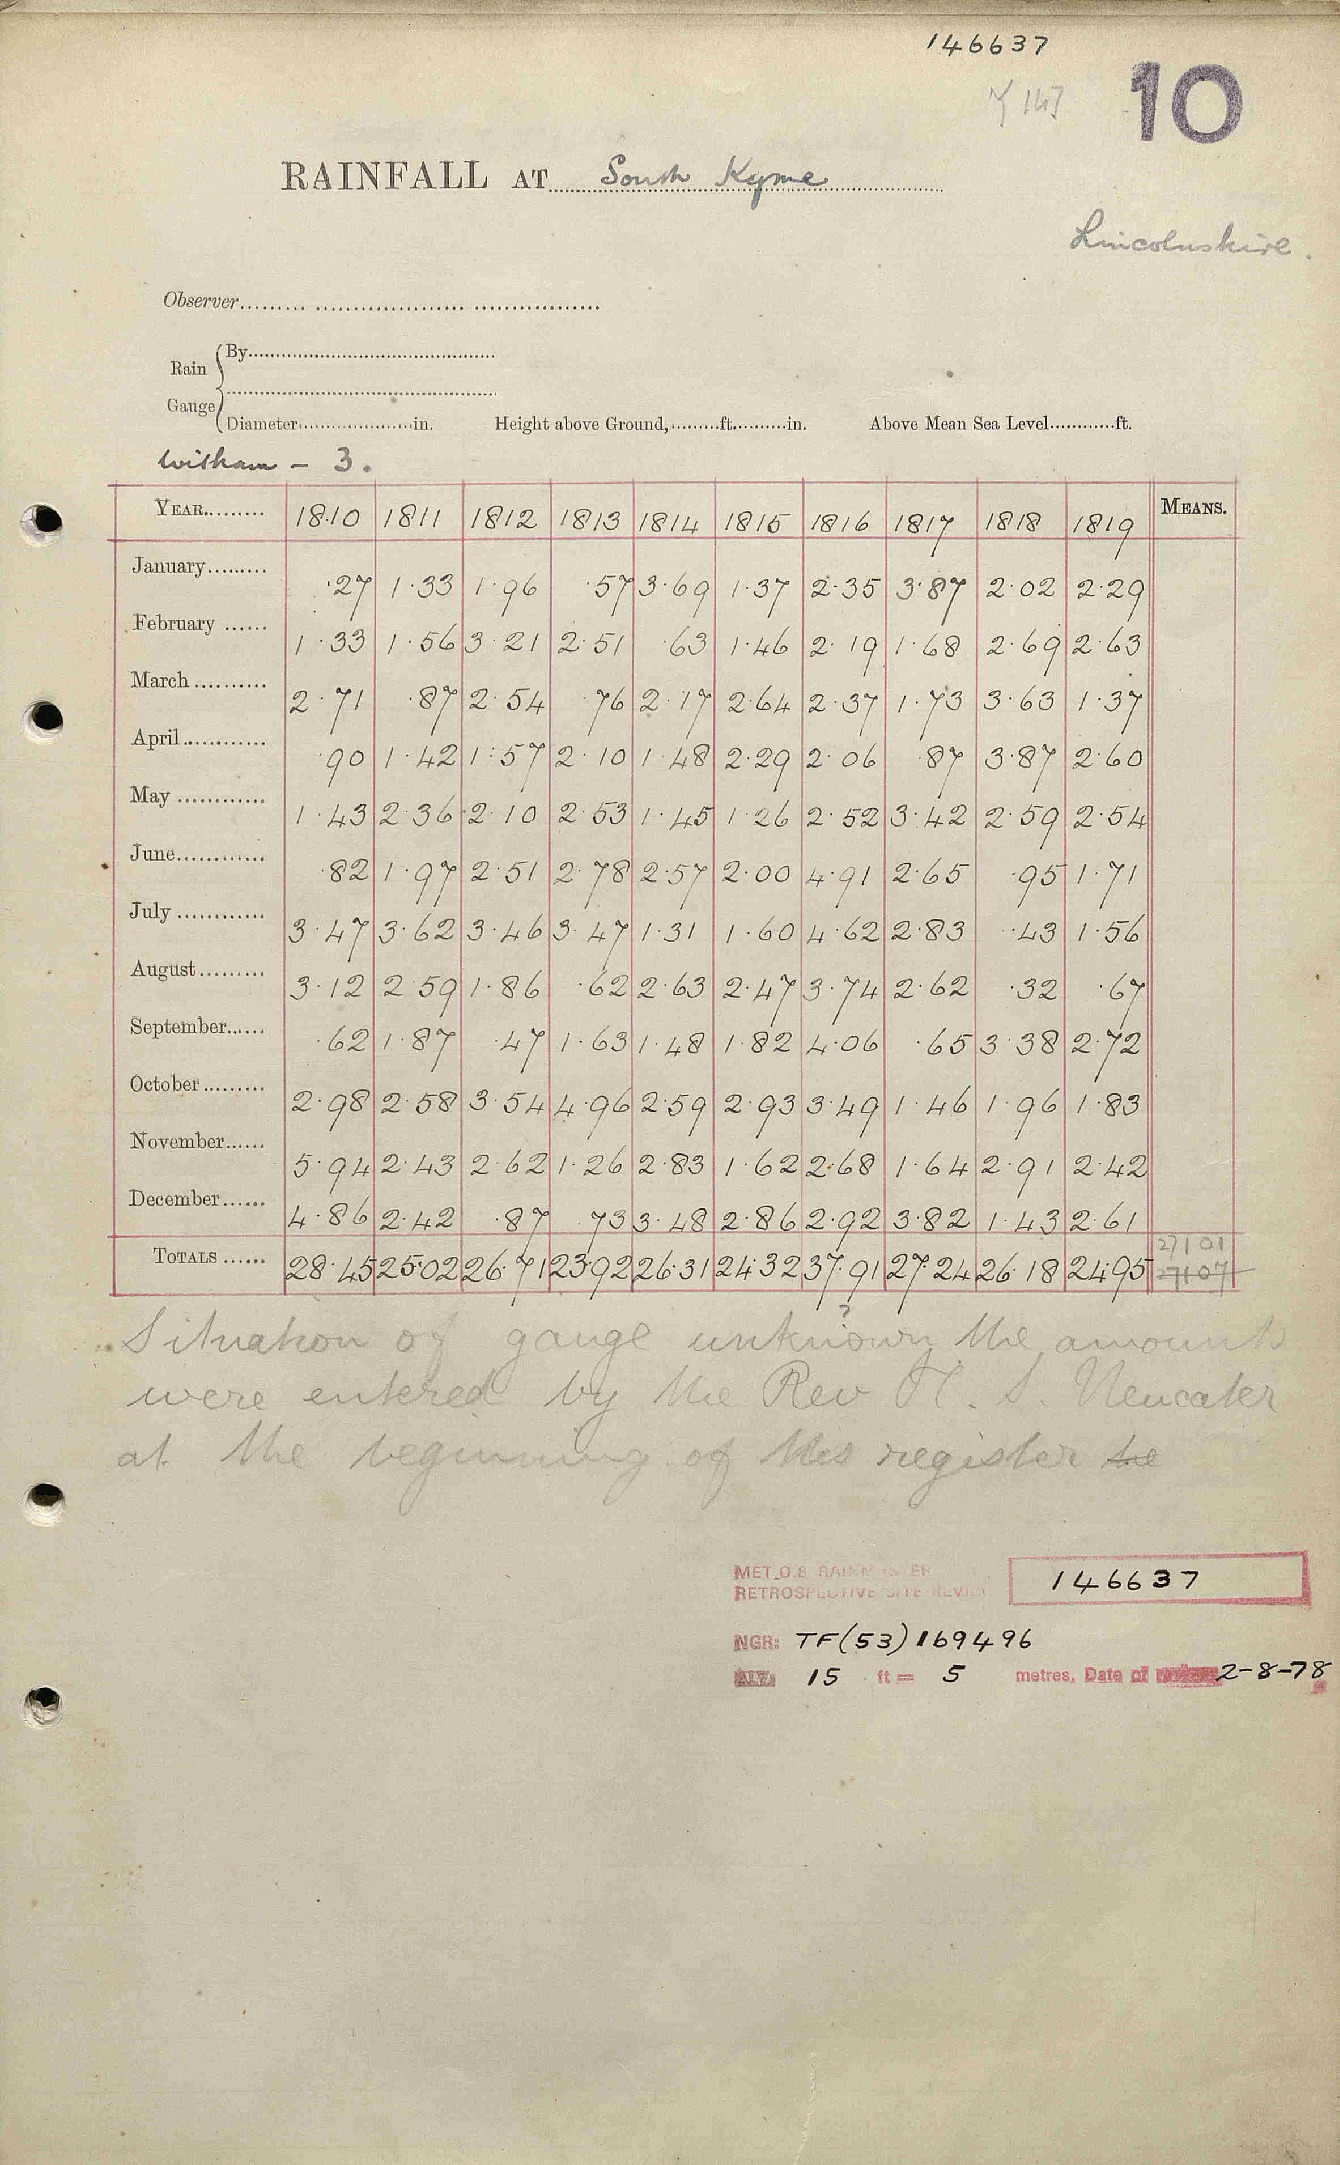 146637
10
RAINFALL AT South Kyme
Lincolnshire.
Observer
Rain Gauge
By
Diameter in. Height above Ground, ft. in. Above Mean Sea Level ft.
Witham - 3.
YEAR 1810 1811 1812 1813 1814 1815 1816 1817 1818 1819 MEANS.
January .27 1.33 1.96 .57 3.69 1.37 2.35 3.87 2.02 2.29
February 1.33 1.56 3.21 2.51 .63 1.46 2.19 1.68 2.69 2.63
March 2.71 .87 2.54 .76 2.17 2.64 2.37 1.73 3.63 1.37
April .90 1.42 1.57 2.10 1.48 2.29 2.06 .87 3.87 2.60
May 1.43 2.36 2.10 2.53 1.45 1.26 2.52 3.42 2.59 2.54
June .82 1.97 2.51 2.78 2.57 2.00 4.91 2.65 .95 1.71
July 3.47 3.62 3.46 3.47 1.31 1.60 4.62 2.83 .43 1.56
August 3.12 2.59 1.86 .62 2.63 2.47 3.74 2.62 .32 .67
September .62 1.87 .47 1.63 1.48 1.82 4.06 .65 3.38 2.72
October 2.98 2.58 3.54 4.96 2.59 2.93 3.49 1.46 1.96 1.83
November 5.94 2.43 2.62 1.26 2.83 1.62 2.68 1.64 2.91 2.42
December 4.86 2.42 .87 .73 3.48 2.86 2.92 3.82 1.43 2.61
27101
TOTALS 28.45 25.02 26.71 23.92 26.31 24.32 37.91 27.24 26.18 24.95 27107
?
Situation of gauge unknown the amounts
were entered by the Rev H. S. Neucater
at the beginning of this register he
MET.O.8
RETROSPECTIVE SITE REVIEW
146637
NGR: TF(53)169496
ALT. 15 ft = 5 metres. Date of 2-8-78